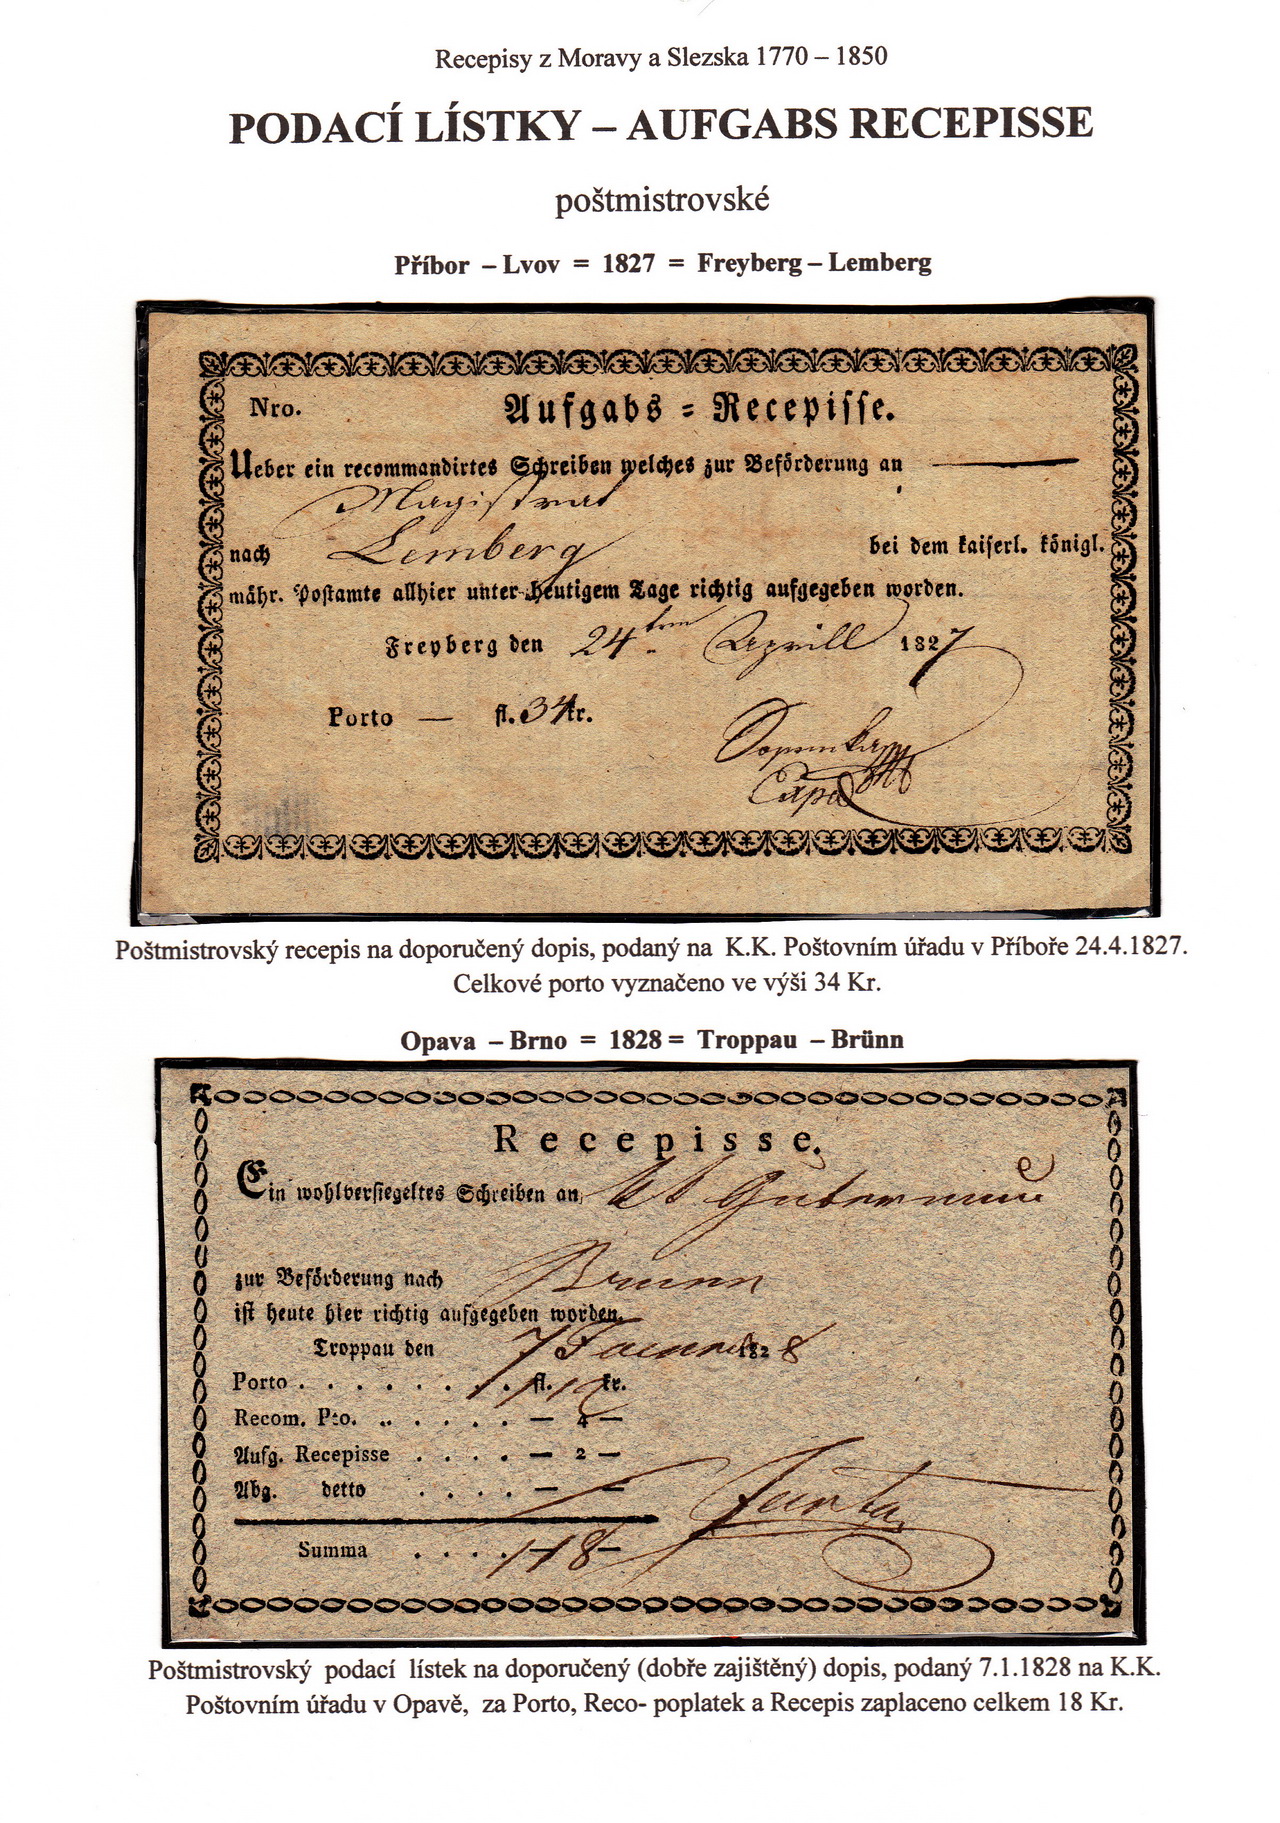 Recepisy z Moravy a Slezska 1770 – 1850
PODACÍ LÍSTKY – AUFGABS RECEPISSE
poštmistrovské
Příbor – Lvov = 1827 = Freyberg – Lemberg
Nro. Aufgabs = Recepisse.
Ueber ein recommandirtes Schreiben welches zur Beförderung an
Magistrat
nach Lemberg bei dem kaiserl. königl.
mähr. Postamte allhier unter heutigem Tage richtig aufgegeben worden.
Freyberg den 24ten Aprill 1827
Porto — fl. 34 kr.
Poštmistrovský recepis na doporučený dopis, podaný na K.K. Poštovním úřadu v Příboře 24.4.1827.
Celkové porto vyznačeno ve výši 34 Kr.
Opava – Brno = 1828 = Troppau – Brünn
Recepisse.
Ein wohlversiegeltes Schreiben an
zur Beförderung nach Brünn
ist heute hier richtig aufgegeben worden.
Troppau den 7 1828
Porto . . . . . . . . fl. 12 kr.
Recom. Pto. . . . . . — 4 —
Aufg. Recepisse . . . . — 2 —
Abg. detto . . . . — —
Summa . . . . 18 —
Poštmistrovský podací lístek na doporučený (dobře zajištěný) dopis, podaný 7.1.1828 na K.K.
Poštovním úřadu v Opavě, za Porto, Reco- poplatek a Recepis zaplaceno celkem 18 Kr.